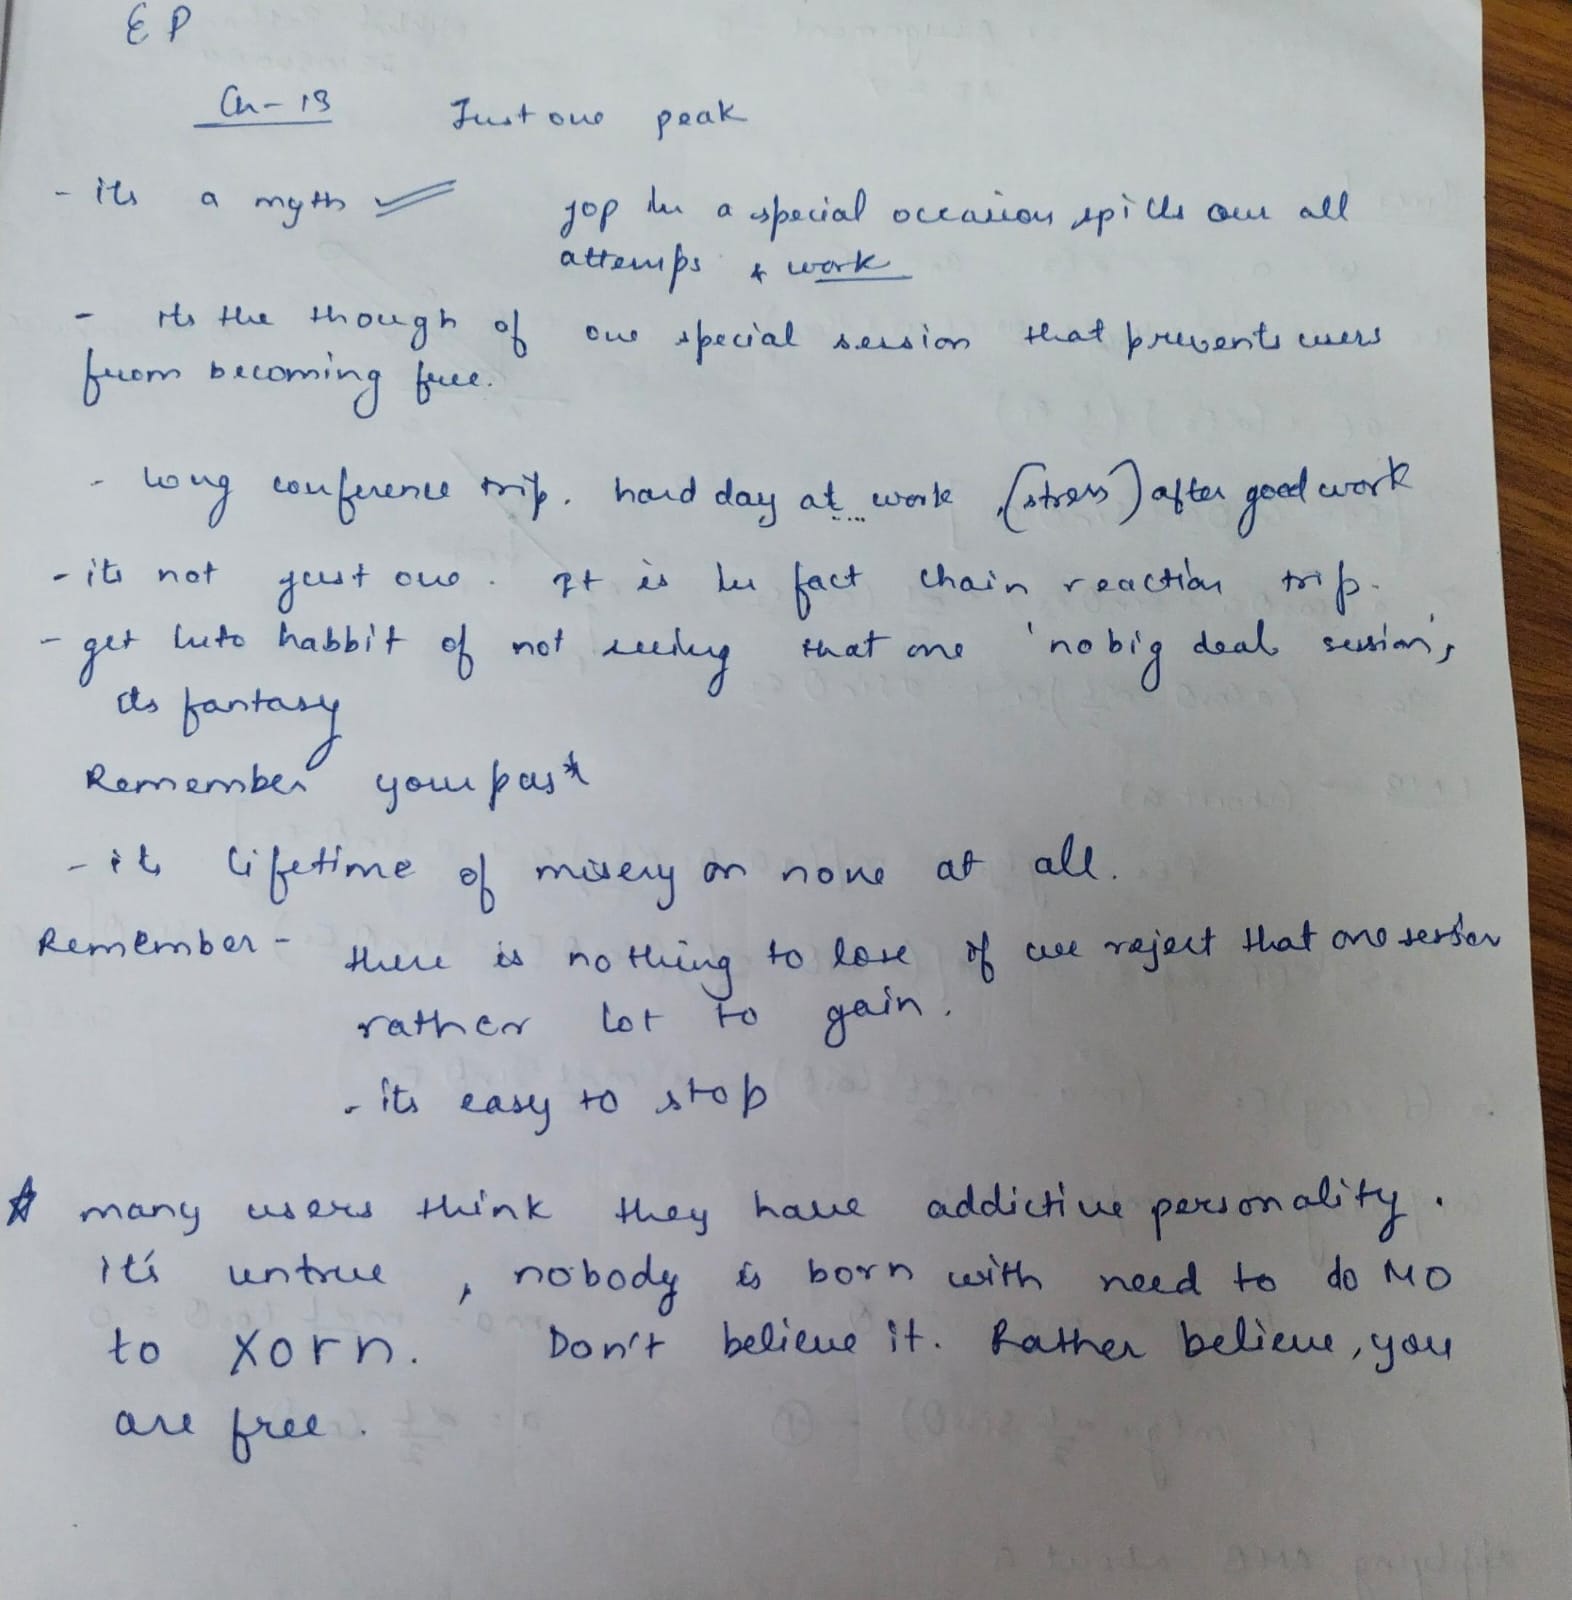 EP
Ch-13 Just one peak
- its a myth
in a special occasion spills our all
attemps & work
- its the though of one special session that prevents users
from becoming free.
- long conference trip. hard day at work, (stress) after good work
- its not just one. It is in fact chain reaction trip.
- get into habbit of not seeing that one 'no big deal session',
its fantasy
Remember your past
- its lifetime of misery or none at all.
Remember - there is nothing to lose if we reject that one session
rather lot to gain.
- its easy to stop
many users think they have addictive personality.
it's untrue, nobody is born with need to do MO
to Xorn. Don't believe it. Rather believe, you
are free.